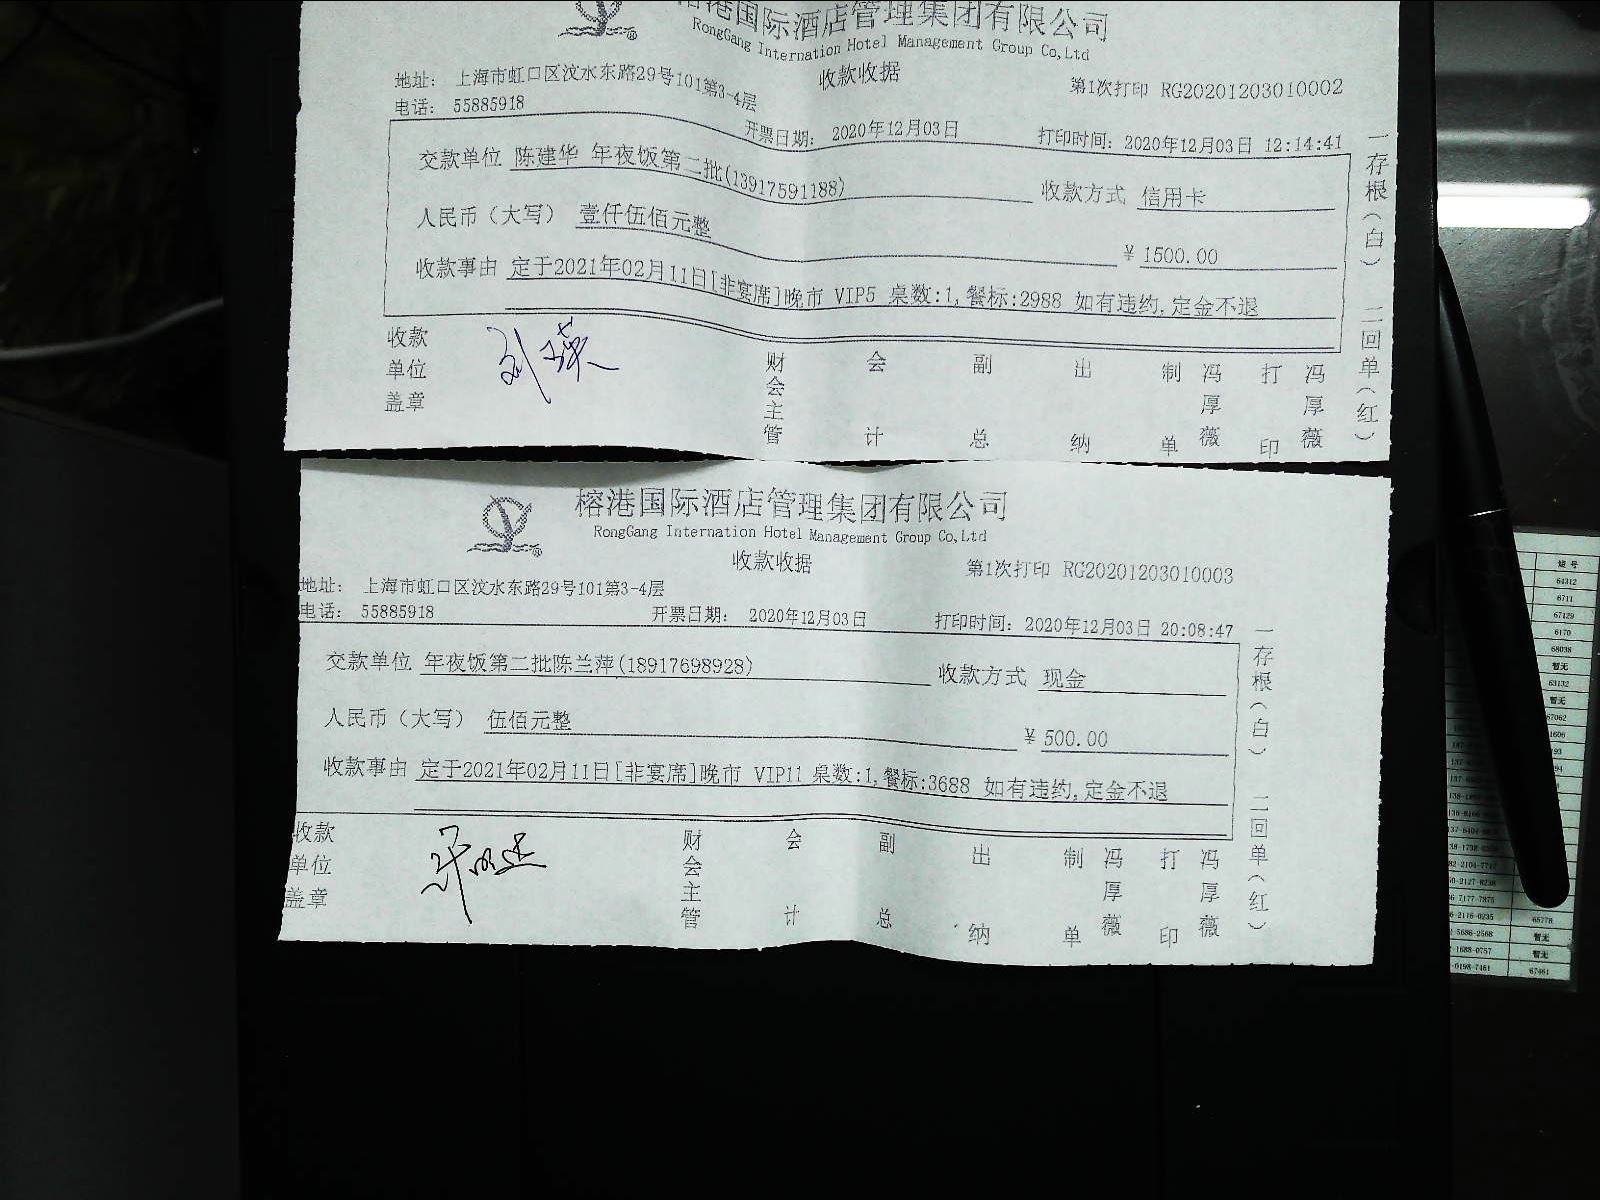 榕港国际酒店管理集团有限公司
RongGang Internation Hotel Management Group Co,Ltd
收款收据
地址: 上海市虹口区汶水东路29号101第3-4层
第1次打印 RG20201203010002
电话: 55885918
开票日期: 2020年12月03日
打印时间: 2020年12月03日 12:14:41
交款单位 陈建华 年夜饭第二批(13917591188)
收款方式 信用卡
人民币（大写） 壹仟伍佰元整
¥ 1500.00
收款事由 定于2021年02月11日[非宴席]晚市 VIP5 桌数:1,餐标:2988 如有违约,定金不退
一存根（白） 二回单（红）
收款单位盖章
财会主管 会计 副总 出纳 制单 冯厚薇 打印 冯厚薇
榕港国际酒店管理集团有限公司
RongGang Internation Hotel Management Group Co,Ltd
收款收据
第1次打印 RG20201203010003
地址: 上海市虹口区汶水东路29号101第3-4层
电话: 55885918
开票日期: 2020年12月03日
打印时间: 2020年12月03日 20:08:47
交款单位 年夜饭第二批陈兰萍(18917698928)
收款方式 现金
人民币（大写） 伍佰元整
¥ 500.00
收款事由 定于2021年02月11日[非宴席]晚市 VIP11 桌数:1,餐标:3688 如有违约,定金不退
一存根（白） 二回单（红）
收款单位盖章
财会主管 会计 副总 出纳 制单 冯厚薇 打印 冯厚薇
64312
6711
67129
6170
68038
暂无
63132
暂无
67062
65778
暂无
暂无
67461